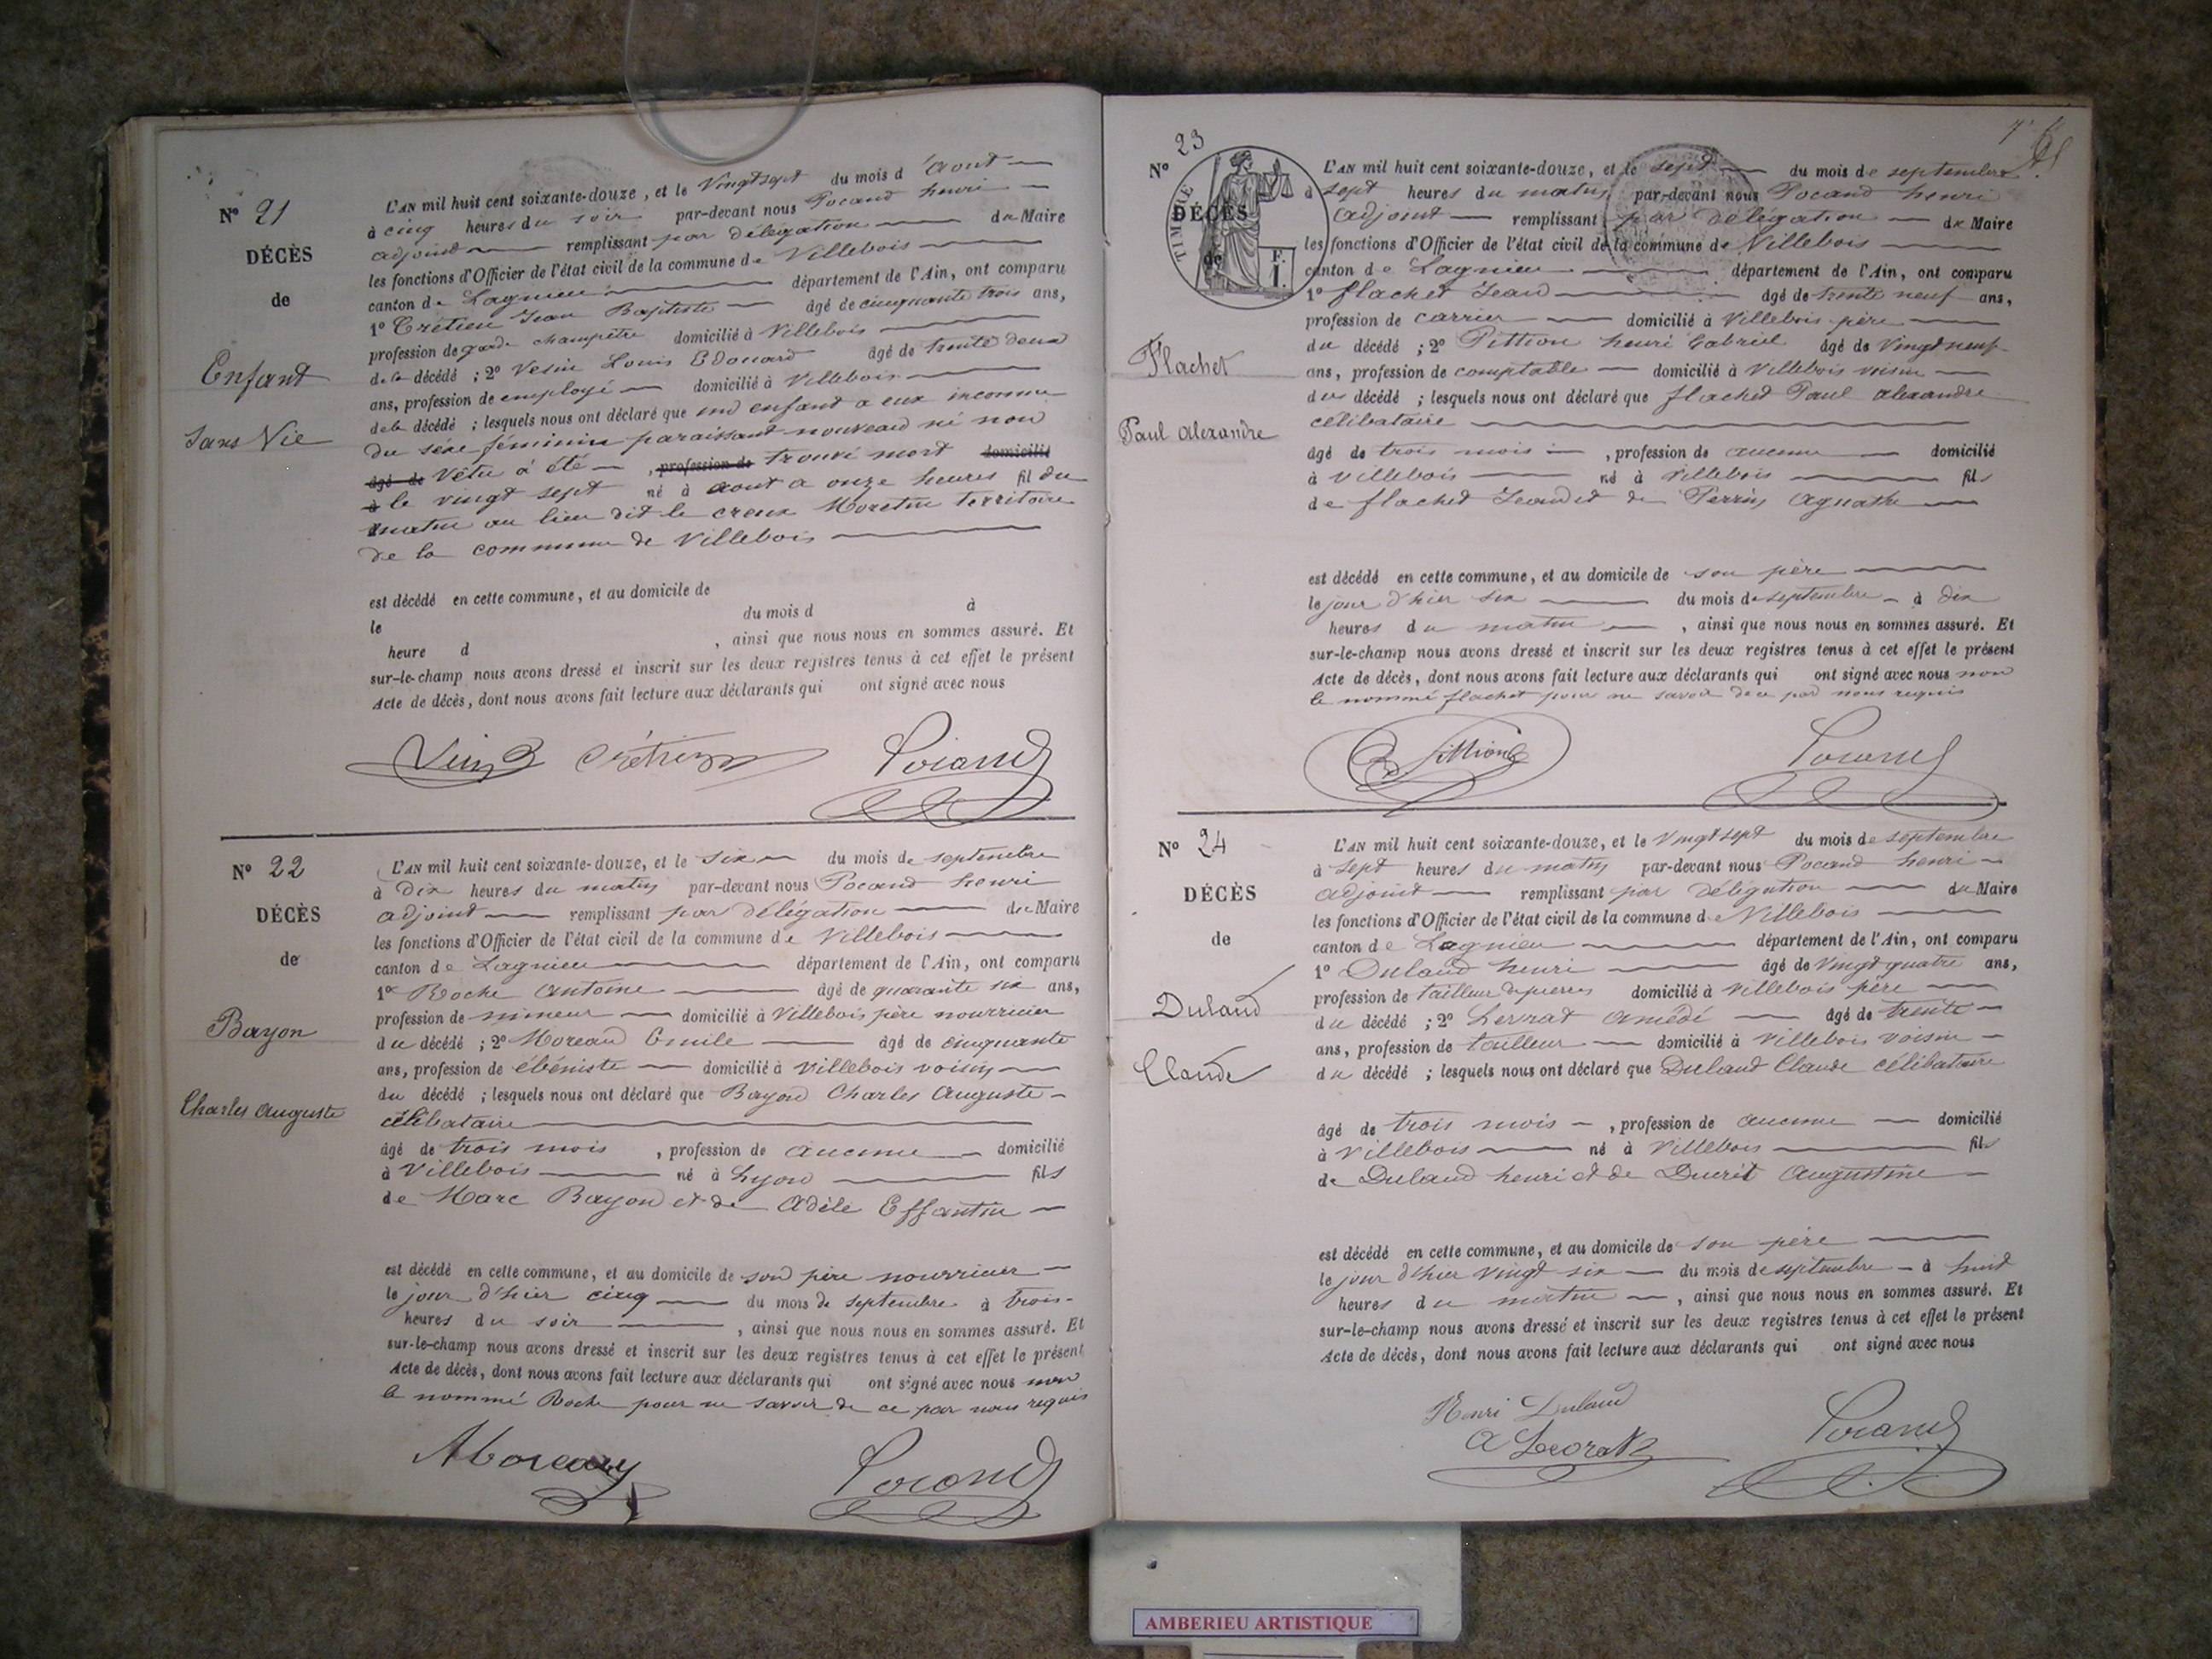 N° 21
DÉCÈS
de
Enfant
Sans Vie
L'AN mil huit cent soixante-douze, et le Vingt sept du mois d'aout
à cinq heures du soir par-devant nous Pocand henri
adjoint remplissant par délégation du Maire
les fonctions d'Officier de l'état civil de la commune de Villebois
canton de Lagnieu département de l'Ain, ont comparu
1° Crétien Jean Baptiste âgé de cinquante trois ans,
profession de garde champêtre domicilié à Villebois
de la décédé ; 2° Vesin Louis Edouard âgé de trente deux
ans, profession de employé domicilié à Villebois
de la décédé ; lesquels nous ont déclaré que un enfant a eux inconnu
du sexe féminin paraissant nouveau né non
âgé de Vêtu à été , profession de trouvé mort domicilié
à le vingt sept né à aout a onze heures fil du
matin au lieu dit le creux Moretin territoire
de la commune de Villebois
est décédé en cette commune, et au domicile de
le du mois d à
heure d , ainsi que nous nous en sommes assuré. Et
sur-le-champ nous avons dressé et inscrit sur les deux registres tenus à cet effet le présent
Acte de décès, dont nous avons fait lecture aux déclarants qui ont signé avec nous
Crétien Pocand
N° 22
DÉCÈS
de
Bayon
Charles Auguste
L'AN mil huit cent soixante-douze, et le six du mois de septembre
à Dix heures du matin par-devant nous Pocand henri
adjoint remplissant par délégation du Maire
les fonctions d'Officier de l'état civil de la commune de Villebois
canton de Lagnieu département de l'Ain, ont comparu
1° Roche Antoine âgé de quarante six ans,
profession de mineur domicilié à Villebois père nourricier
du décédé ; 2° Moreau Emile âgé de cinquante
ans, profession de ébéniste domicilié à Villebois voisin
du décédé ; lesquels nous ont déclaré que Bayon Charles Auguste
célibataire
âgé de trois mois , profession de aucune domicilié
à Villebois né à Lyon fils
de Marc Bayon et de Adèle Effantin
est décédé en cette commune, et au domicile de son père nourricier
le jour d'hier cinq du mois de septembre à trois
heures du soir , ainsi que nous nous en sommes assuré. Et
sur-le-champ nous avons dressé et inscrit sur les deux registres tenus à cet effet le présent
Acte de décès, dont nous avons fait lecture aux déclarants qui ont signé avec nous non
le nommé Roche pour ne savoir de ce par nous requis
Moreau Pocand
N° 23
TIMBRE
F.
1.
DÉCÈS
de
Flachet
Paul Alexandre
L'AN mil huit cent soixante-douze, et le sept du mois de septembre
à sept heures du matin par-devant nous Pocand henri
adjoint remplissant par délégation du Maire
les fonctions d'Officier de l'état civil de la commune de Villebois
canton de Lagnieu département de l'Ain, ont comparu
1° flachet Jean âgé de trente neuf ans,
profession de carrier domicilié à Villebois père
du décédé ; 2° Pittion henri Gabriel âgé de Vingt neuf
ans, profession de comptable domicilié à Villebois voisin
du décédé ; lesquels nous ont déclaré que flachet Paul alexandre
célibataire
âgé de trois mois , profession de aucune domicilié
à Villebois né à Villebois fils
de flachet Jean et de Perrin Agnathe
est décédé en cette commune, et au domicile de son père
le jour d'hier six du mois de septembre à dix
heures du matin , ainsi que nous nous en sommes assuré. Et
sur-le-champ nous avons dressé et inscrit sur les deux registres tenus à cet effet le présent
Acte de décès, dont nous avons fait lecture aux déclarants qui ont signé avec nous non
le nommé flachet pour ne savoir de ce par nous requis
Pittion Pocand
N° 24
DÉCÈS
de
Duland
Claude
L'AN mil huit cent soixante-douze, et le Vingt sept du mois de septembre
à sept heures du matin par-devant nous Pocand henri
adjoint remplissant par délégation du Maire
les fonctions d'Officier de l'état civil de la commune de Villebois
canton de Lagnieu département de l'Ain, ont comparu
1° Duland henri âgé de Vingt quatre ans,
profession de tailleur de pierres domicilié à Villebois père
du décédé ; 2° amédé âgé de trente
ans, profession de tailleur domicilié à Villebois voisin
du décédé ; lesquels nous ont déclaré que Duland Claude célibataire
âgé de trois mois , profession de aucune domicilié
à Villebois né à Villebois fils
de Duland henri et de Ducrit Augustine
est décédé en cette commune, et au domicile de son père
le jour d'hier vingt six du mois de septembre à huit
heures du matin , ainsi que nous nous en sommes assuré. Et
sur-le-champ nous avons dressé et inscrit sur les deux registres tenus à cet effet le présent
Acte de décès, dont nous avons fait lecture aux déclarants qui ont signé avec nous
Henri Duland
Pocand
AMBERIEU ARTISTIQUE